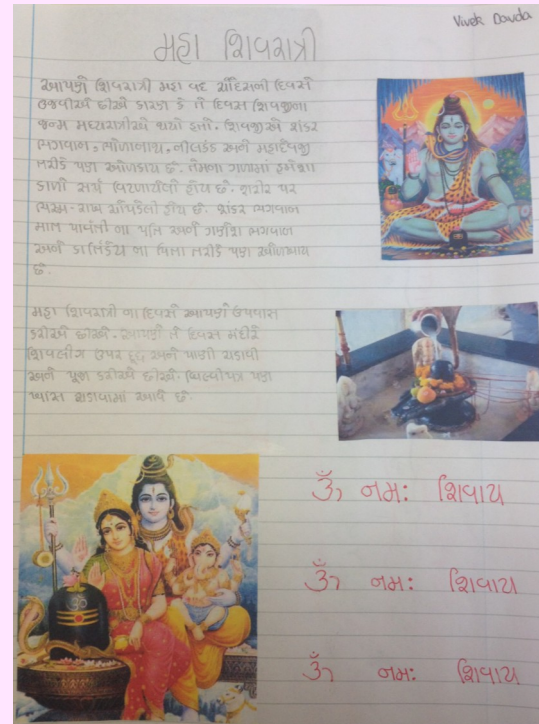 Vivek Davda
મહા શિવરાત્રી
આપણે શિવરાત્રી મહા વદ ચૌદસની દિવસે
ઉજવીએ છીએ કારણ કે તે દિવસ શિવજીના
જન્મ મધ્યરાત્રીએ થયો હતો. શિવજીએ શંકર
ભગવાન, ભોળાનાથ, નીલકંઠ અને મહાદેવજી
તરીકે પણ ઓળખાય છે. તેમના ગળામાં હંમેશા
કાળો સર્પ વિંટળાયેલો હોય છે. શરીર પર
ભસ્મ-રાખ ચોપડેલી હોય છે. શંકર ભગવાન
માતા પાર્વતી ના પતિ અને ગણેશ ભગવાન
અને કાર્તિકેય ના પિતા તરીકે પણ ઓળખાય
છે.
મહા શિવરાત્રી ના દિવસે આપણે ઉપવાસ
કરીએ છીએ. આપણે તે દિવસ મંદીરે
શિવલીંગ ઉપર દૂધ અને પાણી ચડાવી
અને પૂજા કરીએ છીએ. બિલ્વીપત્ર પણ
ખાસ ચડાવામાં આવે છે.
ૐ નમઃ શિવાય
ૐ નમઃ શિવાય
ૐ નમઃ શિવાય